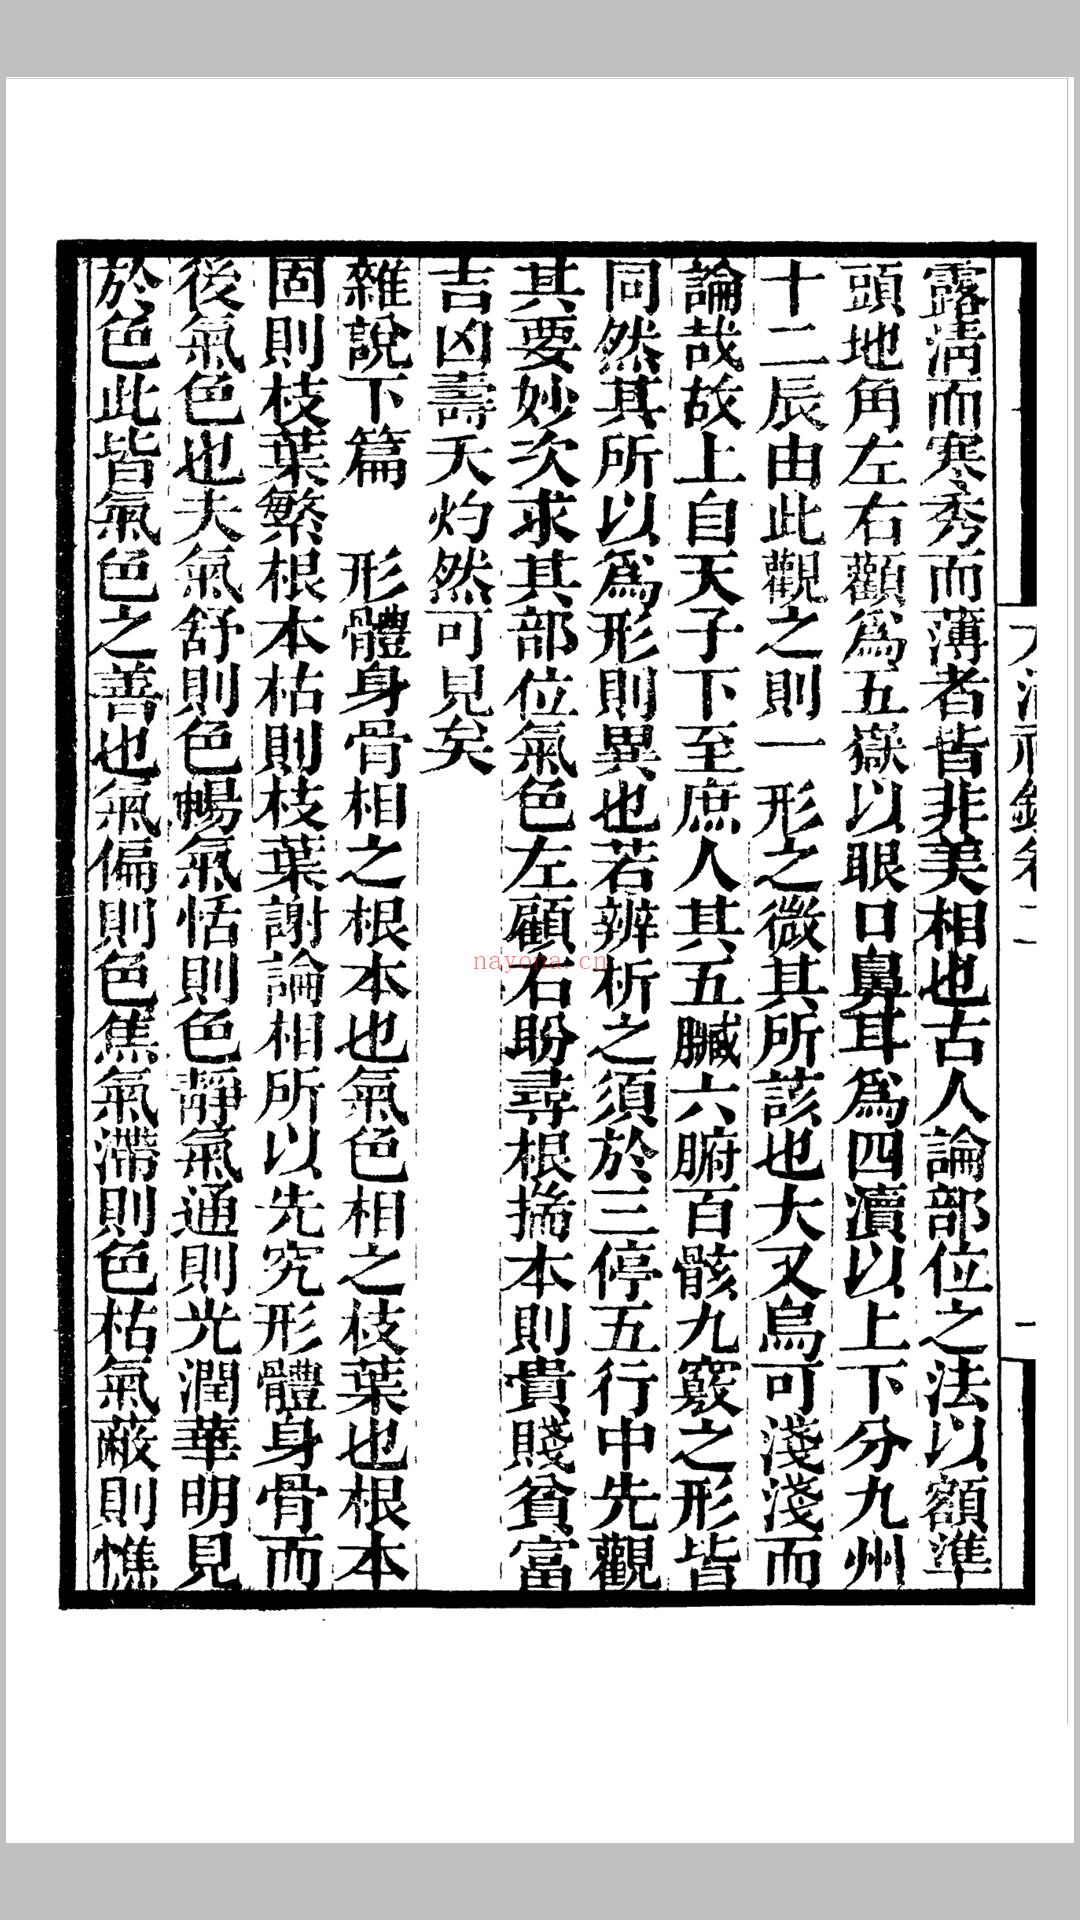 露淸而寒秀而薄者皆非美相也古人論部位之法以額準
頭地角左右顴爲五嶽以眼口鼻耳爲四瀆以上下分九州
十二辰由此觀之則一形之微其所該也大又烏可淺淺而
論哉故上自天子下至庶人其五臟六腑百骸九竅之形皆
同然其所以爲形則異也若辨析之須於三停五行中先觀
其要妙次求其部位氣色左顧右盼尋根揣本則貴賤貧富
吉凶壽夭灼然可見矣
雜說下篇　形體身骨相之根本也氣色相之枝葉也根本
固則枝葉繁根本枯則枝葉謝論相所以先究形體身骨而
後氣色也夫氣舒則色暢氣恬則色靜氣通則光潤華明見
於色此皆氣色之善也氣偏則色焦氣滯則色枯氣蔽則憔
nayona.cn